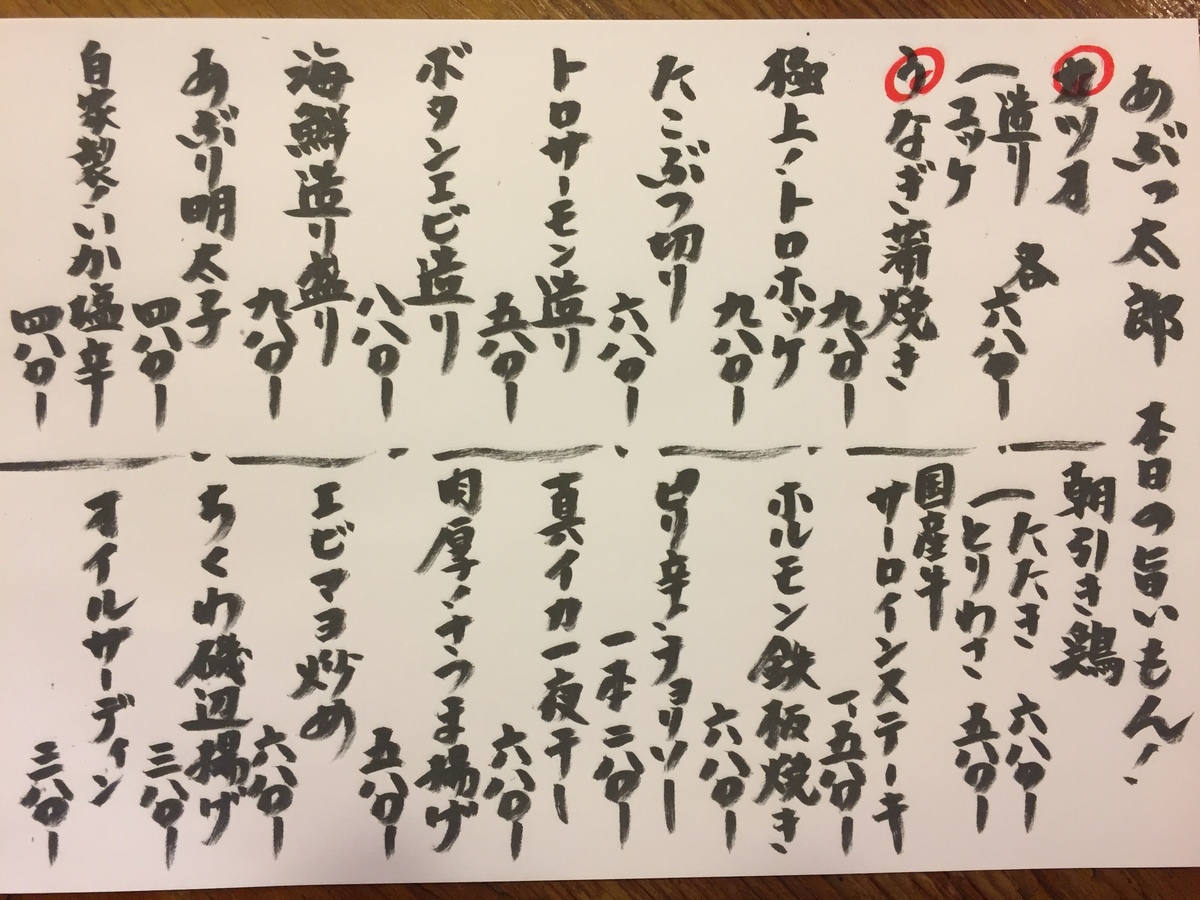 あぶつ太郎 本日の旨いもん!
カツオ
造り
ユッケ
各六八〇ー
うなぎ蒲焼き
九八〇ー
極上!トロホッケ
九八〇ー
たこぶつ切り
六八〇ー
トロサーモン造り
五八〇ー
ボタンエビ造り
八八〇ー
海鮮造り盛り
九八〇ー
あぶり明太子
四八〇ー
自家製!いか塩辛
四八〇ー
朝引き鶏
たたき 六八〇ー
とりわさ 五八〇ー
国産牛
サーロインステーキ
一、五八〇ー
ホルモン鉄板焼き
六八〇ー
ピリ辛!チョリソー
一本二八〇ー
真イカ一夜干し
六八〇ー
肉厚!さつま揚げ
五八〇ー
エビマヨ炒め
六八〇ー
ちくわ磯辺揚げ
三八〇ー
オイルサーディン
三八〇ー